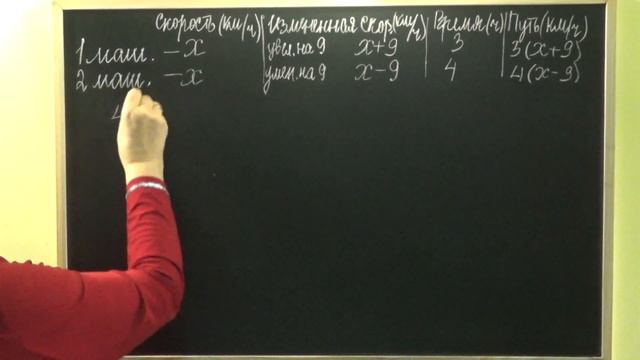 Скорость (км/ч) Измененная скор. (км/ч) Время (ч) Путь (км/ч)
1 маш. – x увел. на 9 x+9 3 3(x+9)
2 маш. – x умен. на 9 x–9 4 4(x–9)
4